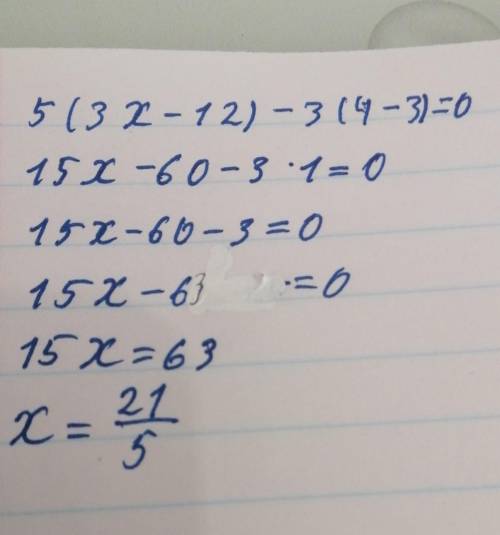 5(3x-12)-3(4-3)=0
15x-60-3·1=0
15x-60-3=0
15x-63 =0
15x=63
x=21/5